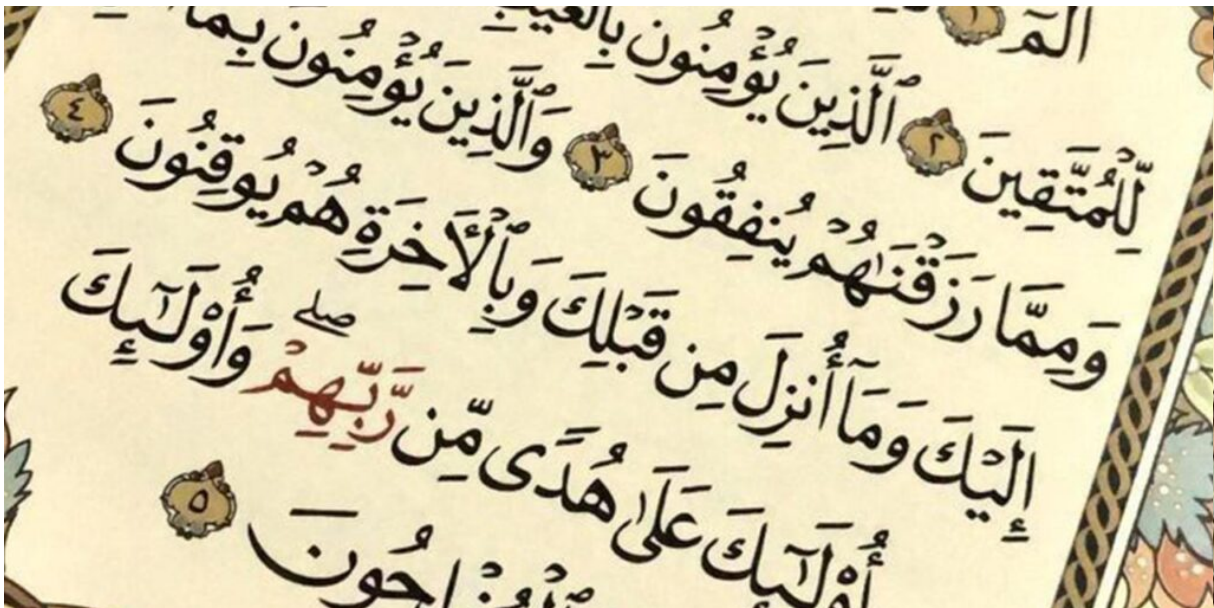 الٓمٓ ١
لِّلْمُتَّقِينَ ٢ ٱلَّذِينَ يُؤْمِنُونَ بِالْغَيْبِ
وَمِمَّا رَزَقْنَٰهُمْ يُنفِقُونَ ٣ وَٱلَّذِينَ يُؤْمِنُونَ بِمَا
إِلَيْكَ وَمَآ أُنزِلَ مِن قَبْلِكَ وَبِٱلْأَخِرَةِ هُمْ يُوقِنُونَ ٤
أُوْلَٰٓئِكَ عَلَىٰ هُدًى مِّن رَّبِّهِمْ ۖ وَأُوْلَٰٓئِكَ
٥